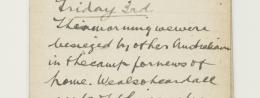 Friday 3rd.
This morning we were
besieged by other Australians
in the camp for news of
home. We also heard all